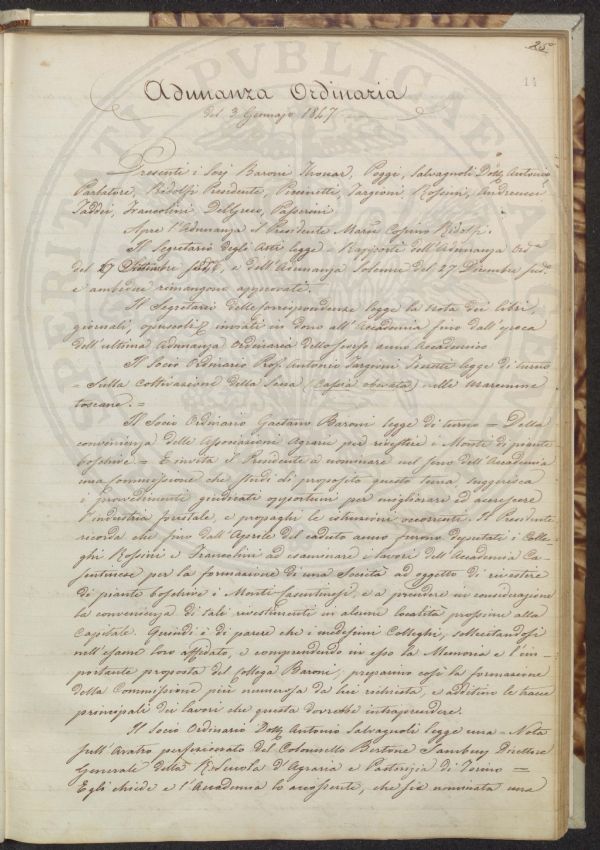 25º
14
Adunanza Ordinaria
del 3. Gennajo 1847
Presenti i Soci Baroni, Thouar, Poggi, Salvagnoli Dott. Antonio
Parlatore, Ridolfi Presidente, Piccinetti, Targioni, Rossini, Andreucci
Taddei, Francolini, DelGreco, Passerini
Apre l'Adunanza il Presidente March. Cosimo Ridolfi.
Il Segretario degli Atti legge i Rapporti dell'Adunanza Ord.ª
del 27 Settembre, e dell'Adunanza Solenne del 27 Dicembre sud.º
e ambedue rimangono approvati.
Il Segretario delle Corrispondenze legge la Nota dei libri,
giornali, opuscoli & inviati in dono all'Accademia fino dall'epoca
dell'ultima Adunanza Ordinaria dello scorso anno Accademico
Il Socio Ordinario Prof. Antonio Targioni Tozzetti legge di turno
= Sulla Coltivazione della Sena (Cassia obovata) nelle Maremme
toscane. =
Il Socio Ordinario Gaetano Baroni legge di turno = Della
convenienza delle Associazioni Agrarie per rivestire i Monti di piante
boschive = E invita il Presidente a nominare nel seno dell'Accademia
una Commissione che studi di proposito questo tema, suggerisca
i provvedimenti giudicati opportuni per migliorare ed accrescere
l'industria forestale, e propaghi le istruzioni occorrenti. Il Presidente
ricorda che fino dall'Aprile del caduto anno furono deputati i Colle-
ghi Rossini e Francolini ad esaminare i lavori dell'Accademia Ca-
sentinese per la formazione di una Società ad oggetto di rivestire
di piante boschive i Monti Casentinesi, e a prendere in considerazione
la convenienza di tali rivestimenti in alcune località prossime alla
Capitale. Quindi è di parere che i medesimi Colleghi, sollecitandosi
nell'esame loro affidato, e comprendendo in esso la Memoria e l'im-
portante proposta del Collega Baroni, preparino così la formazione
della Commissione più numerosa da lui richiesta, e additino le tracce
principali dei lavori che questa dovrebbe intraprendere.
Il Socio Ordinario Dott. Antonio Salvagnoli legge una = Nota
sull'Aratro perfezionato del Colonnello Bertone Sambuy Direttore
Generale della R. Scuola d'Agraria e Pastorizia di Torino =
Egli chiede e l'Accademia lo acconsente, che sia nominata una